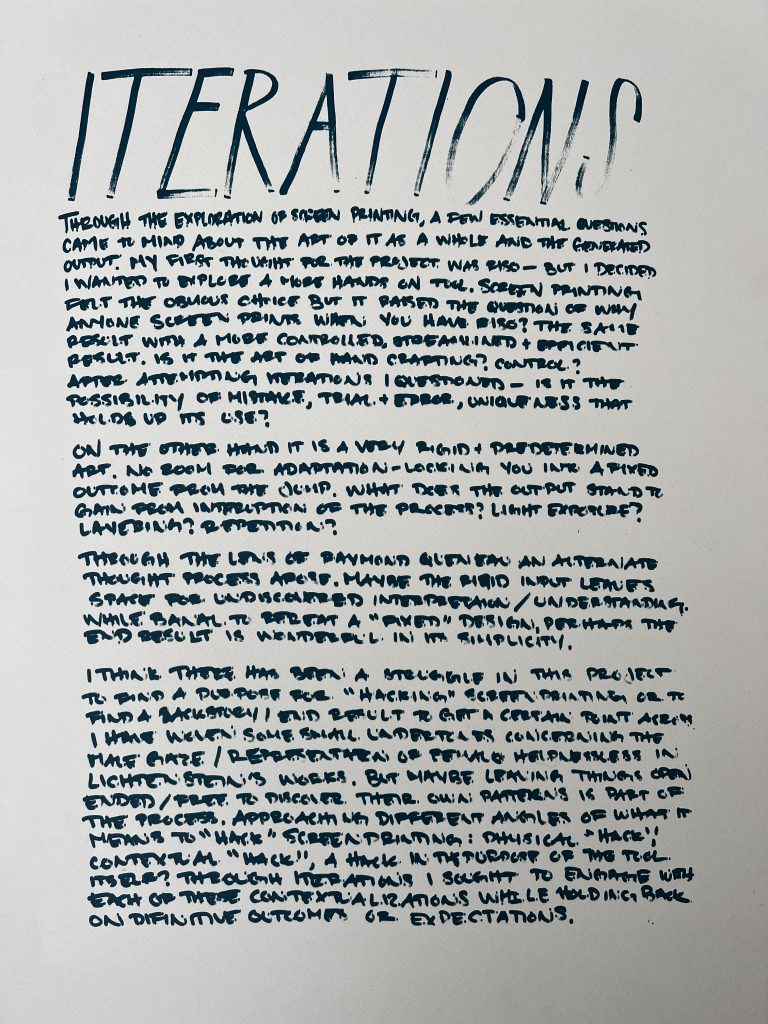 ITERATIONS
THROUGH THE EXPLORATION OF SCREEN PRINTING, A FEW ESSENTIAL QUESTIONS
CAME TO MIND ABOUT THE ART OF IT AS A WHOLE AND THE GENERATED
OUTPUT. MY FIRST THOUGHT FOR THE PROJECT WAS RISO — BUT I DECIDED
I WANTED TO EXPLORE A MORE HANDS ON TOOL. SCREEN PRINTING
FELT THE OBVIOUS CHOICE BUT IT RAISED THE QUESTION OF WHY
ANYONE SCREEN PRINTS WHEN YOU HAVE RISO? THE SAME
RESULT WITH A MORE CONTROLLED, STREAMLINED + EFFICIENT
RESULT. IS IT THE ART OF HAND CRAFTING? CONTROL?
AFTER ATTEMPTING ITERATIONS I QUESTIONED — IS IT THE
POSSIBILITY OF MISTAKE, TRIAL + ERROR, UNIQUENESS THAT
HOLDS UP ITS USE?
ON THE OTHER HAND IT IS A VERY RIGID + PREDETERMINED
ART. NO ROOM FOR ADAPTATION - LOCKING YOU INTO A FIXED
OUTCOME FROM THE JUMP. WHAT DOES THE OUTPUT STAND TO
GAIN FROM INTERUPTION OF THE PROCESS? LIGHT EXPOSURE?
LAYERING? REPETITION?
THROUGH THE LENS OF RAYMOND QUENEAU AN ALTERNATE
THOUGHT PROCESS AROSE. MAYBE THE RIGID INPUT LEAVES
SPACE FOR UNDISCOVERED INTERPRETATION / UNDERSTANDING.
WHILE BANAL TO REPEAT A "FIXED" DESIGN, PERHAPS THE
END RESULT IS WONDERFUL IN ITS SIMPLICITY.
I THINK THERE HAS BEEN A STRUGGLE IN THIS PROJECT
TO FIND A PURPOSE FOR "HACKING" SCREENPRINTING OR TO
FIND A BACKSTORY / END RESULT TO GET A CERTAIN POINT ACROSS
I HAVE WOVEN SOME SMALL UNDERTONES CONCERNING THE
MALE GAZE / REPRESENTATION OF FEMALE HELPNESSLESS IN
LICHTENSTEIN'S WORKS. BUT MAYBE LEAVING THINGS OPEN
ENDED / FREE TO DISCOVER THEIR OWN PATTERNS IS PART OF
THE PROCESS. APPROACHING DIFFERENT ANGLES OF WHAT IT
MEANS TO "HACK" SCREENPRINTING: PHYSICAL "HACK",
CONTEXTUAL "HACK", A HACK IN THE PURPOSE OF THE TOOL
ITSELF? THROUGH ITERATIONS I SOUGHT TO ENGAGE WITH
EACH OF THESE CONTEXTUALIZATIONS WHILE HOLDING BACK
ON DIFINITIVE OUTCOMES OR EXPECTATIONS.